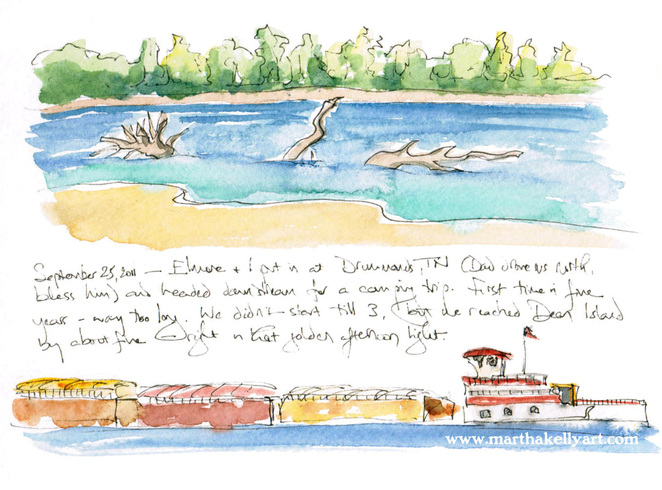 September 25, 2011 – Elmore + I put in at Drummonds, TN (Dad drove us north,
bless him) and headed downstream for a camping trip. First time in five
years – way too long. We didn't start till 3, but we reached Dean Island
by about five right in that golden afternoon light.
www.marthakellyart.com